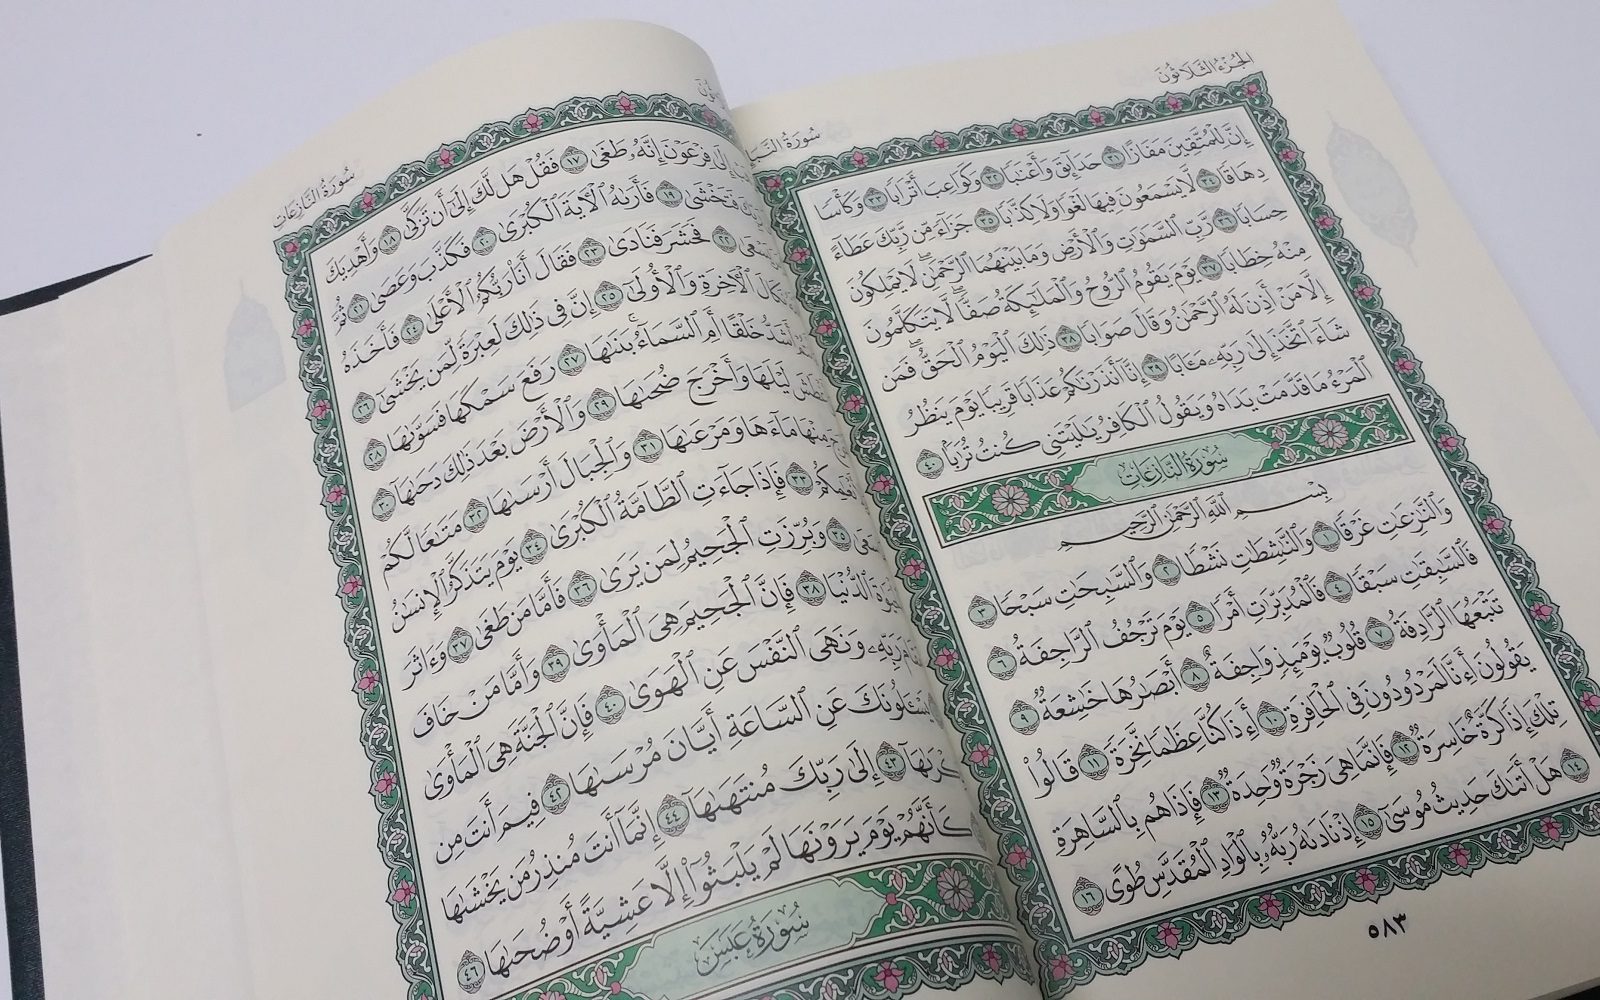 سُورَةُ النَّبَإِ
الجُزْءُ الثَّلَاثُونَ
إِنَّ لِلْمُتَّقِينَ مَفَازًا ٣١ حَدَآئِقَ وَأَعْنَٰبًا ٣٢ وَكَوَاعِبَ أَتْرَابًا ٣٣ وَكَأْسًا
دِهَاقًا ٣٤ لَّا يَسْمَعُونَ فِيهَا لَغْوًا وَلَا كِذَّٰبًا ٣٥ جَزَآءً مِّن رَّبِّكَ عَطَآءً
حِسَابًا ٣٦ رَّبِّ ٱلسَّمَٰوَٰتِ وَٱلْأَرْضِ وَمَا بَيْنَهُمَا ٱلرَّحْمَٰنِ ۖ لَا يَمْلِكُونَ
مِنْهُ خِطَابًا ٣٧ يَوْمَ يَقُومُ ٱلرُّوحُ وَٱلْمَلَٰٓئِكَةُ صَفًّا ۖ لَّا يَتَكَلَّمُونَ
إِلَّا مَنْ أَذِنَ لَهُ ٱلرَّحْمَٰنُ وَقَالَ صَوَابًا ٣٨ ذَٰلِكَ ٱلْيَوْمُ ٱلْحَقُّ ۖ فَمَن
شَآءَ ٱتَّخَذَ إِلَىٰ رَبِّهِۦ مَـَٔابًا ٣٩ إِنَّآ أَنذَرْنَٰكُمْ عَذَابًا قَرِيبًا يَوْمَ يَنظُرُ
ٱلْمَرْءُ مَا قَدَّمَتْ يَدَاهُ وَيَقُولُ ٱلْكَافِرُ يَٰلَيْتَنِى كُنتُ تُرَٰبًا ٤٠
سُورَةُ النَّازِعَاتِ
بِسْمِ ٱللَّهِ ٱلرَّحْمَٰنِ ٱلرَّحِيمِ
وَٱلنَّٰزِعَٰتِ غَرْقًا ١ وَٱلنَّٰشِطَٰتِ نَشْطًا ٢ وَٱلسَّٰبِحَٰتِ سَبْحًا ٣
فَٱلسَّٰبِقَٰتِ سَبْقًا ٤ فَٱلْمُدَبِّرَٰتِ أَمْرًا ٥ يَوْمَ تَرْجُفُ ٱلرَّاجِفَةُ ٦
تَتْبَعُهَا ٱلرَّادِفَةُ ٧ قُلُوبٌ يَوْمَئِذٍ وَاجِفَةٌ ٨ أَبْصَٰرُهَا خَٰشِعَةٌ ٩
يَقُولُونَ أَءِنَّا لَمَرْدُودُونَ فِى ٱلْحَافِرَةِ ١٠ أَءِذَا كُنَّا عِظَٰمًا نَّخِرَةً ١١ قَالُوا۟
تِلْكَ إِذًا كَرَّةٌ خَاسِرَةٌ ١٢ فَإِنَّمَا هِىَ زَجْرَةٌ وَٰحِدَةٌ ١٣ فَإِذَا هُم بِٱلسَّاهِرَةِ
١٤ هَلْ أَتَىٰكَ حَدِيثُ مُوسَىٰٓ ١٥ إِذْ نَادَىٰهُ رَبُّهُۥ بِٱلْوَادِ ٱلْمُقَدَّسِ طُوًى ١٦
٥٨٣
سُورَةُ النَّازِعَاتِ
إِلَىٰ فِرْعَوْنَ إِنَّهُۥ طَغَىٰ ١٧ فَقُلْ هَل لَّكَ إِلَىٰٓ أَن تَزَكَّىٰ ١٨ وَأَهْدِيَكَ
رَبِّكَ فَتَخْشَىٰ ١٩ فَأَرَىٰهُ ٱلْـَٔايَةَ ٱلْكُبْرَىٰ ٢٠ فَكَذَّبَ وَعَصَىٰ ٢١ ثُمَّ
يَسْعَىٰ ٢٢ فَحَشَرَ فَنَادَىٰ ٢٣ فَقَالَ أَنَا۠ رَبُّكُمُ ٱلْأَعْلَىٰ ٢٤ فَأَخَذَهُ
نَكَالَ ٱلْـَٔاخِرَةِ وَٱلْأُولَىٰٓ ٢٥ إِنَّ فِى ذَٰلِكَ لَعِبْرَةً لِّمَن يَخْشَىٰٓ ٢٦
أَشَدُّ خَلْقًا أَمِ ٱلسَّمَآءُ ۚ بَنَىٰهَا ٢٧ رَفَعَ سَمْكَهَا فَسَوَّىٰهَا ٢٨
لَيْلَهَا وَأَخْرَجَ ضُحَىٰهَا ٢٩ وَٱلْأَرْضَ بَعْدَ ذَٰلِكَ دَحَىٰهَآ ٣٠
مِنْهَا مَآءَهَا وَمَرْعَىٰهَا ٣١ وَٱلْجِبَالَ أَرْسَىٰهَا ٣٢ مَتَٰعًا لَّكُمْ
٣٣ فَإِذَا جَآءَتِ ٱلطَّآمَّةُ ٱلْكُبْرَىٰ ٣٤ يَوْمَ يَتَذَكَّرُ ٱلْإِنسَٰنُ
٣٥ وَبُرِّزَتِ ٱلْجَحِيمُ لِمَن يَرَىٰ ٣٦ فَأَمَّا مَن طَغَىٰ ٣٧ وَءَاثَرَ
ٱلدُّنْيَا ٣٨ فَإِنَّ ٱلْجَحِيمَ هِىَ ٱلْمَأْوَىٰ ٣٩ وَأَمَّا مَنْ خَافَ
رَبِّهِۦ وَنَهَى ٱلنَّفْسَ عَنِ ٱلْهَوَىٰ ٤٠ فَإِنَّ ٱلْجَنَّةَ هِىَ ٱلْمَأْوَىٰ
يَسْـَٔلُونَكَ عَنِ ٱلسَّاعَةِ أَيَّانَ مُرْسَىٰهَا ٤٢ فِيمَ أَنتَ مِن
ذِكْرَىٰهَآ ٤٣ إِلَىٰ رَبِّكَ مُنتَهَىٰهَآ ٤٤ إِنَّمَآ أَنتَ مُنذِرُ مَن يَخْشَىٰهَا
كَأَنَّهُمْ يَوْمَ يَرَوْنَهَا لَمْ يَلْبَثُوٓا۟ إِلَّا عَشِيَّةً أَوْ ضُحَىٰهَا ٤٦
سُورَةُ عَبَسَ